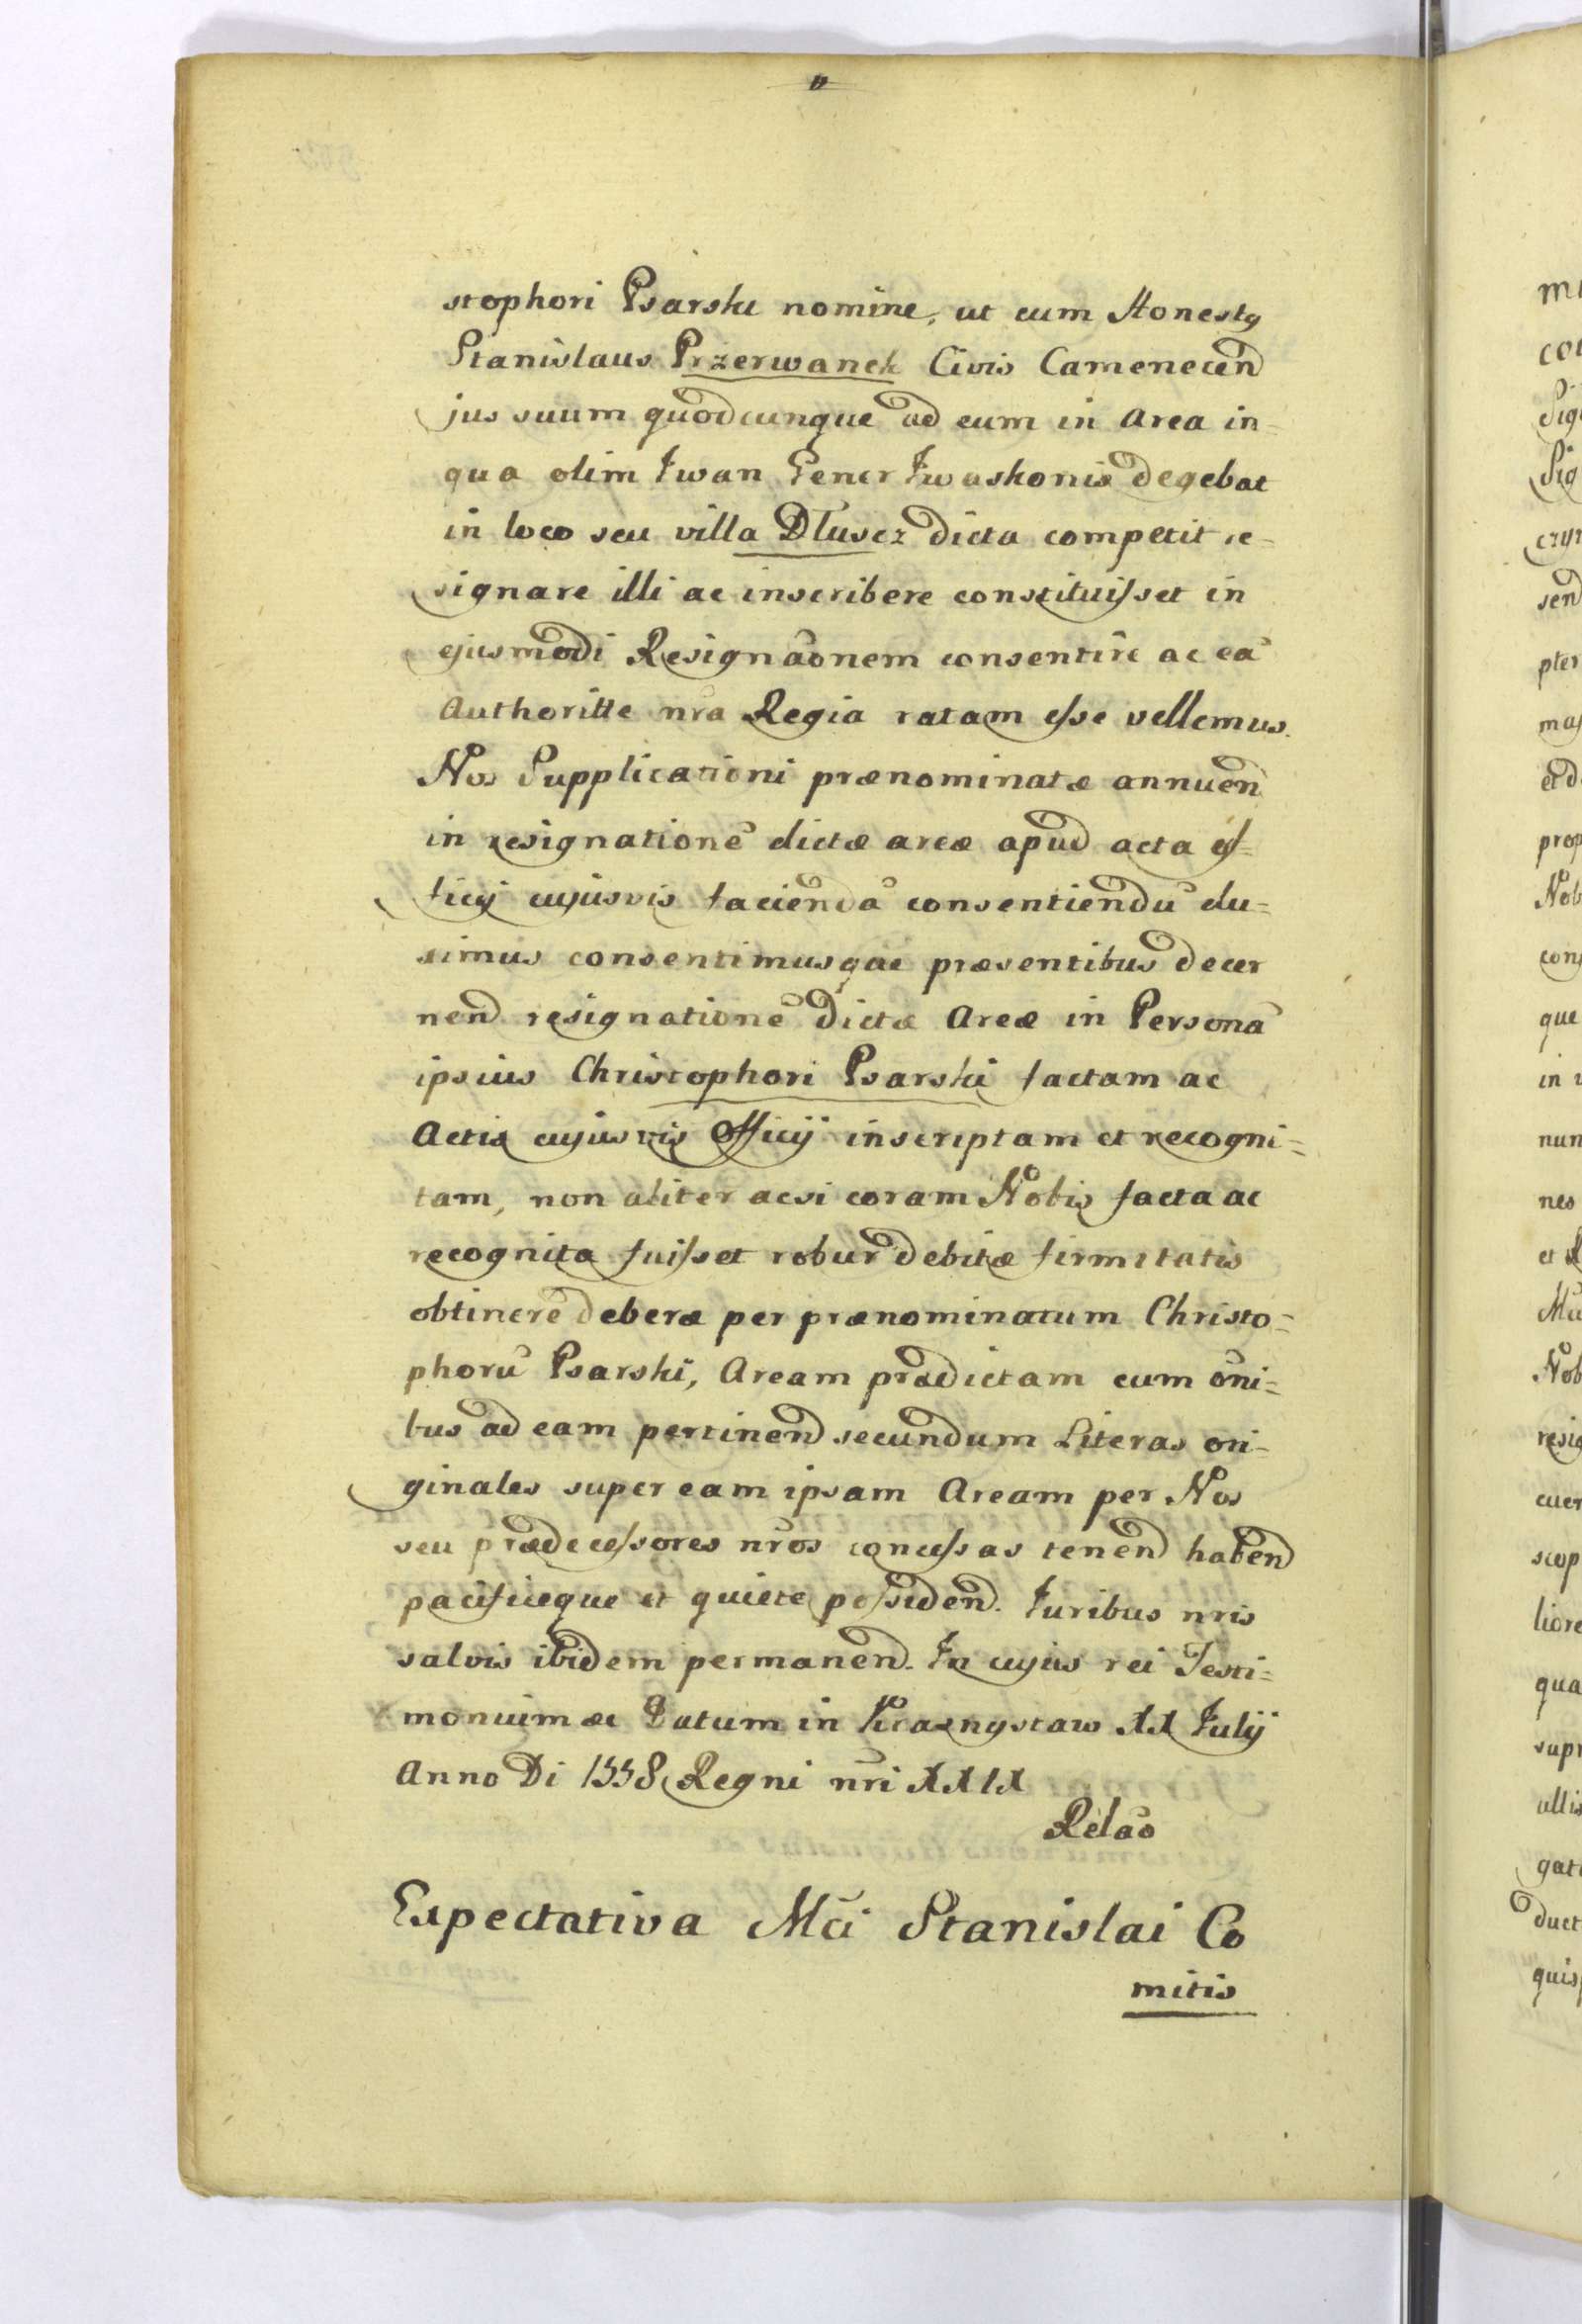 stophori Psarski nomine, ut cum Honestꝰ
Stanislaus Przerwanek Civis Camenecen̄
jus suum quodcunque ad eum in area in=
qua olim Iwan Gener Iwaskonis degebat
in loco seu villa Dłuscz dicta competit re=
signare illi ac inscribere constituisset in
ejusmodi Resignāonem consentire ac eā
Authoritte nr̄a Regia ratam esse vellemus.
Nos Supplicationi prænominatæ annuen̄
in resignationē dictæ areæ apud acta of=
ficij cujusvis faciendā consentiendū du=
ximus consentimusque præsentibus decer
nen̄d resignationē dictæ areæ in Personā
ipsius Christophori Psarski factam ac
Actis cujusvis Officij inscriptam et recogni=
tam, non aliter acsi coram Nobis facta ac
recognita fuisset robur debitæ firmitatis
obtinere deberæ per prænominatum Christo=
phorū Psarski, Aream prædictam cum om̄i=
bus ad eam pertinen̄d secundum Literas ori=
ginales super eam ipsam Aream per Nos
seu prædecessores nr̄os concessas tenen̄d haben̄d
pacificeque et quiete possiden̄d. Iuribus nris
salvis ibidem permanen̄d. In cujus rei Testi=
monium ac Datum in Krasnystaw XX Iulij
Anno Di 1558 Regni nr̄i XXIX
Relāo
Expectativa Mci Stanislai Co
mitis